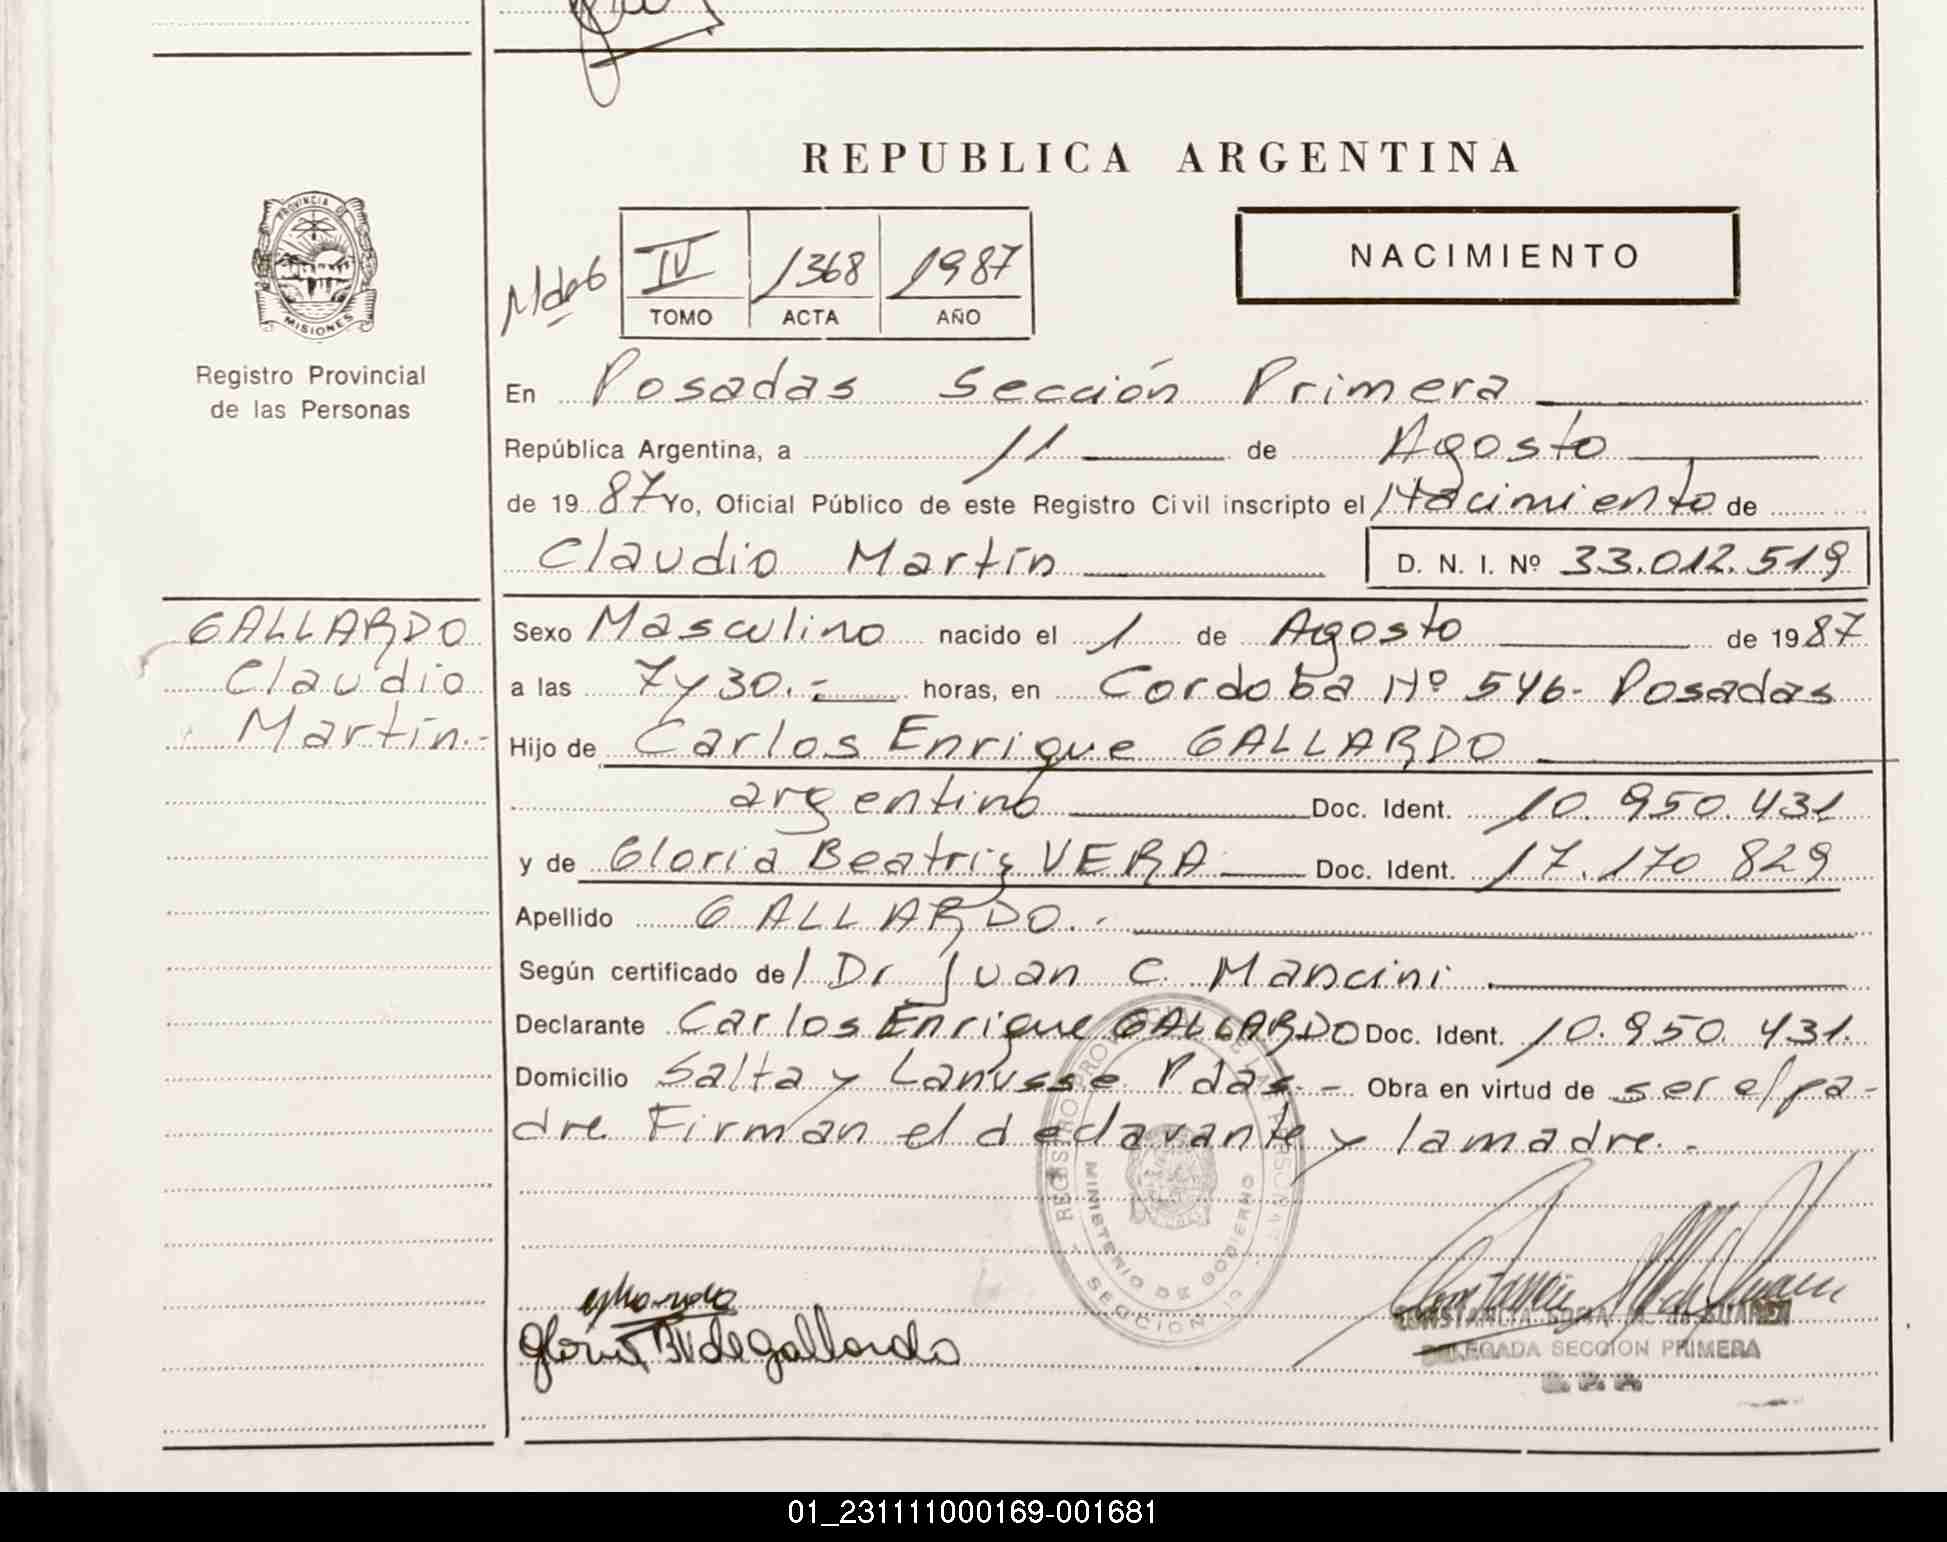 REPUBLICA ARGENTINA
PROVINCIA DE
MISIONES
Registro Provincial
de las Personas
IV 1368 1987
TOMO ACTA AÑO
NACIMIENTO
En Posadas Sección Primera
República Argentina, a 11 de Agosto
de 19 87 Yo, Oficial Público de este Registro Civil inscripto el Nacimiento de
Claudio Martín D. N. I. Nº 33.012.519
GALLARDO
Claudio
Martín.-
Sexo Masculino nacido el 1 de Agosto de 19 87
a las 7 y 30.- horas, en Cordoba Nº 546- Posadas
Hijo de Carlos Enrique GALLARDO
argentino Doc. Ident. 10.950.431
y de Gloria Beatriz VERA Doc. Ident. 17.170 829
Apellido GALLARDO.-
Según certificado de l Dr Juan C. Mancini
Declarante Carlos Enrique GALLARDO Doc. Ident. 10.950.431.
Domicilio Salta y Lanusse Pdas.- Obra en virtud de ser el pa-
dre Firman el declarante y la madre.-
REGISTRO PROVINCIAL DE LAS PERSONAS
MINISTERIO DE GOBIERNO
SECCION
Gloria BV de gallardo
CONSTANCIA SOFIA M. DE
DELEGADA SECCION PRIMERA
01_231111000169-001681